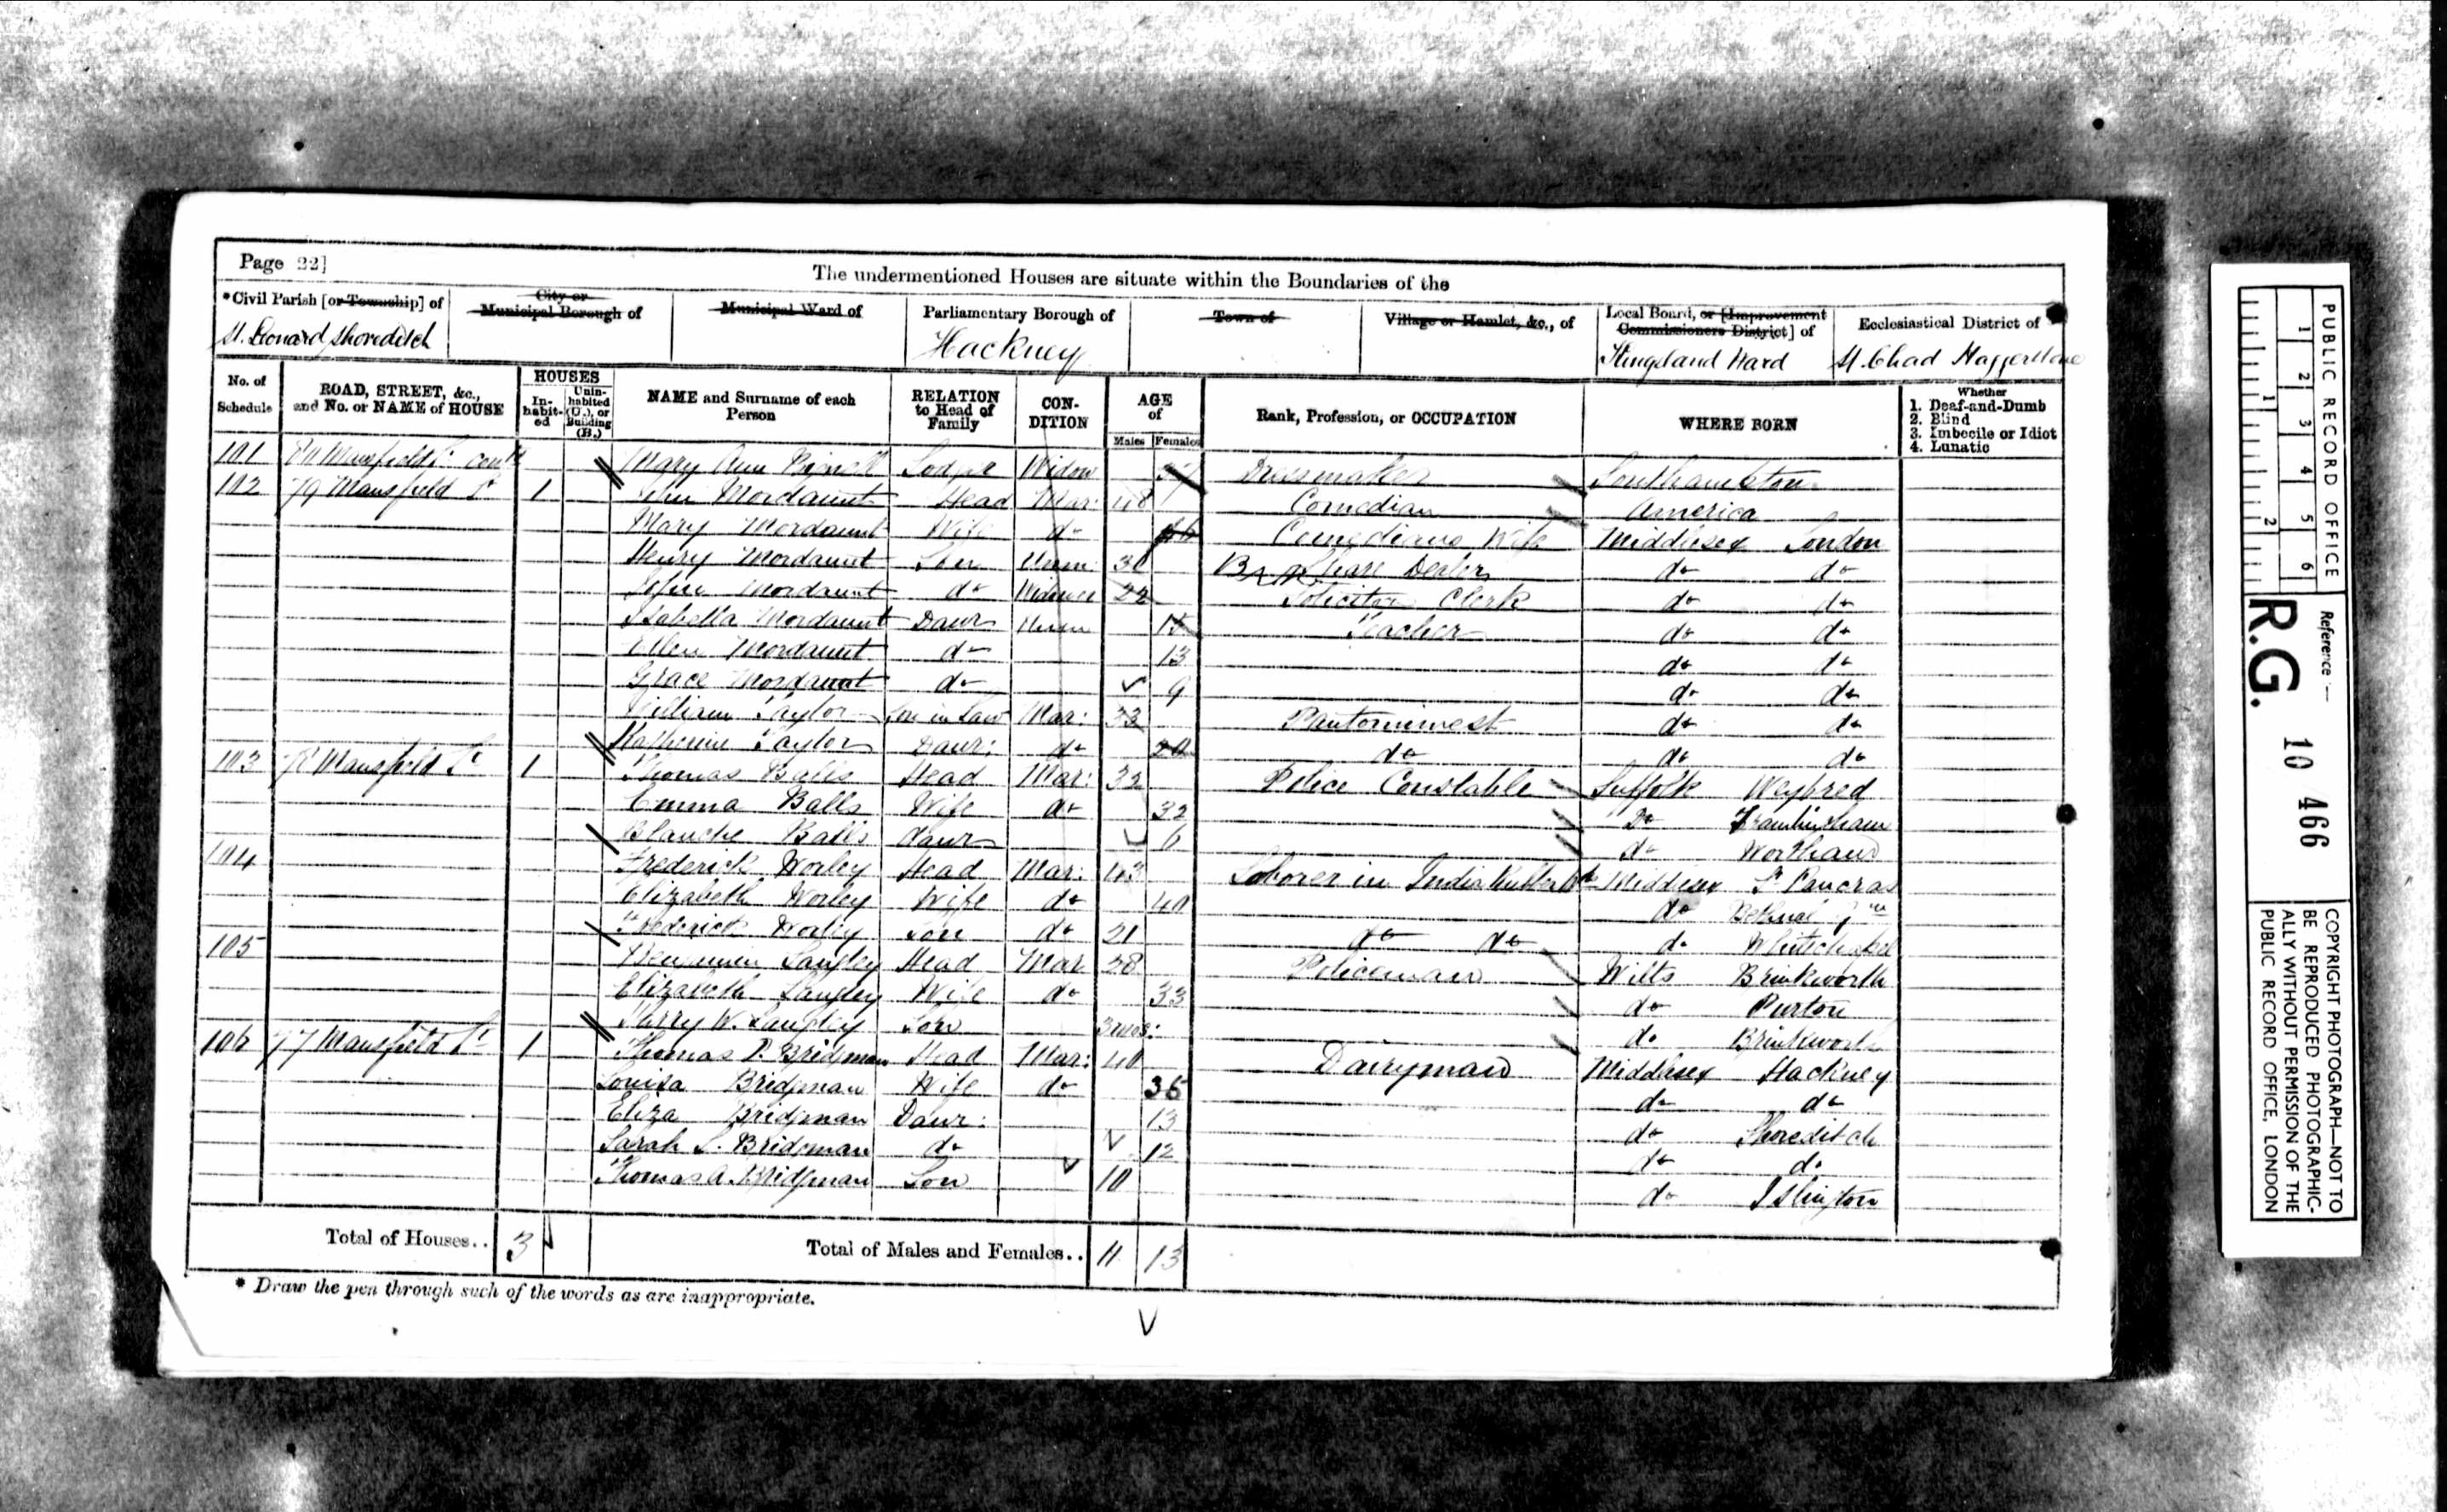 Page 22]
The undermentioned Houses are situate within the Boundaries of the
*Civil Parish [or Township] of
City or Municipal Borough of
Municipal Ward of
Parliamentary Borough of
Town of
Village or Hamlet, &c., of
Local Board, or [Improvement Commissioners District] of
Ecclesiastical District of
St. Leonard Shoreditch
Hackney
Kingsland Ward
St. Chad Haggerstone
No. of Schedule
ROAD, STREET, &c., and No. or NAME of HOUSE
HOUSES
In-habit-ed
Unin-habited (U.), or Building (B.)
NAME and Surname of each Person
RELATION to Head of Family
CON-DITION
AGE of
Males
Females
Rank, Profession, or OCCUPATION
WHERE BORN
Whether
1. Deaf-and-Dumb
2. Blind
3. Imbecile or Idiot
4. Lunatic
101 Mansfield St. contd Mary Ann Lodger Widow Dressmaker Southampton
102 79 Mansfield St 1 John Mordaunt Head Mar: 48 Comedian America
Mary Mordaunt Wife do 46 Comedians Wife Middlesex London
Henry Mordaunt Son Unm: 30 Dealer do do
John Mordaunt do Widower 22 Solicitor Clerk do do
Isabella Mordaunt Daur Unm 15 Teacher do do
Ellen Mordaunt do 13 do do
Grace Mordaunt do 9 do do
William Taylor Son in Law Mar: 33 Pantomimest do do
Katherine Taylor Daur: do 20 do do do
103 78 Mansfield St 1 Thomas Balls Head Mar: 32 Police Constable Suffolk Weybred
Emma Balls Wife do 32 Do Framlingham
Blanche Balls daur 6 do Wortham
104 Frederick Worley Head Mar: 43 Laborer in India Rubber Middlesex St Pancras
Elizabeth Worley Wife do 40 do Bethnal Gn
Frederick Worley Son do 21 do do do Whitechapel
105 Benjamin Langley Head Mar 28 Policeman Wilts Brinkworth
Elizabeth Langley Wife do 33 do Purton
Harry W. Langley Son 3 mos: do Brinkworth
106 77 Mansfield St 1 Thomas P. Bridgman Head Mar: 40 Dairyman Middlesex Hackney
Louisa Bridgman Wife do 36 do do
Eliza Bridgman Daur: 13 do Shoreditch
Sarah L. Bridgman do 12 do do
Thomas A. Bridgman Son 10 do Islington
Total of Houses.. 3
Total of Males and Females.. 11 13
* Draw the pen through such of the words as are inappropriate.
PUBLIC RECORD OFFICE
1 2 3 4 5 6
1 2
Reference :—
R.G. 10 466
COPYRIGHT PHOTOGRAPH—NOT TO
BE REPRODUCED PHOTOGRAPHIC-
ALLY WITHOUT PERMISSION OF THE
PUBLIC RECORD OFFICE, LONDON